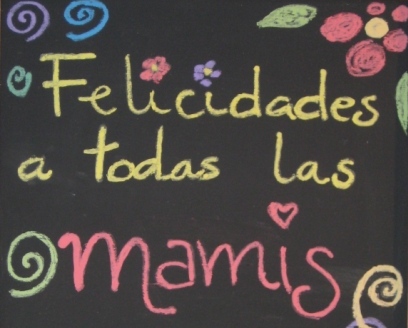 Felicidades
a todas las
mamis